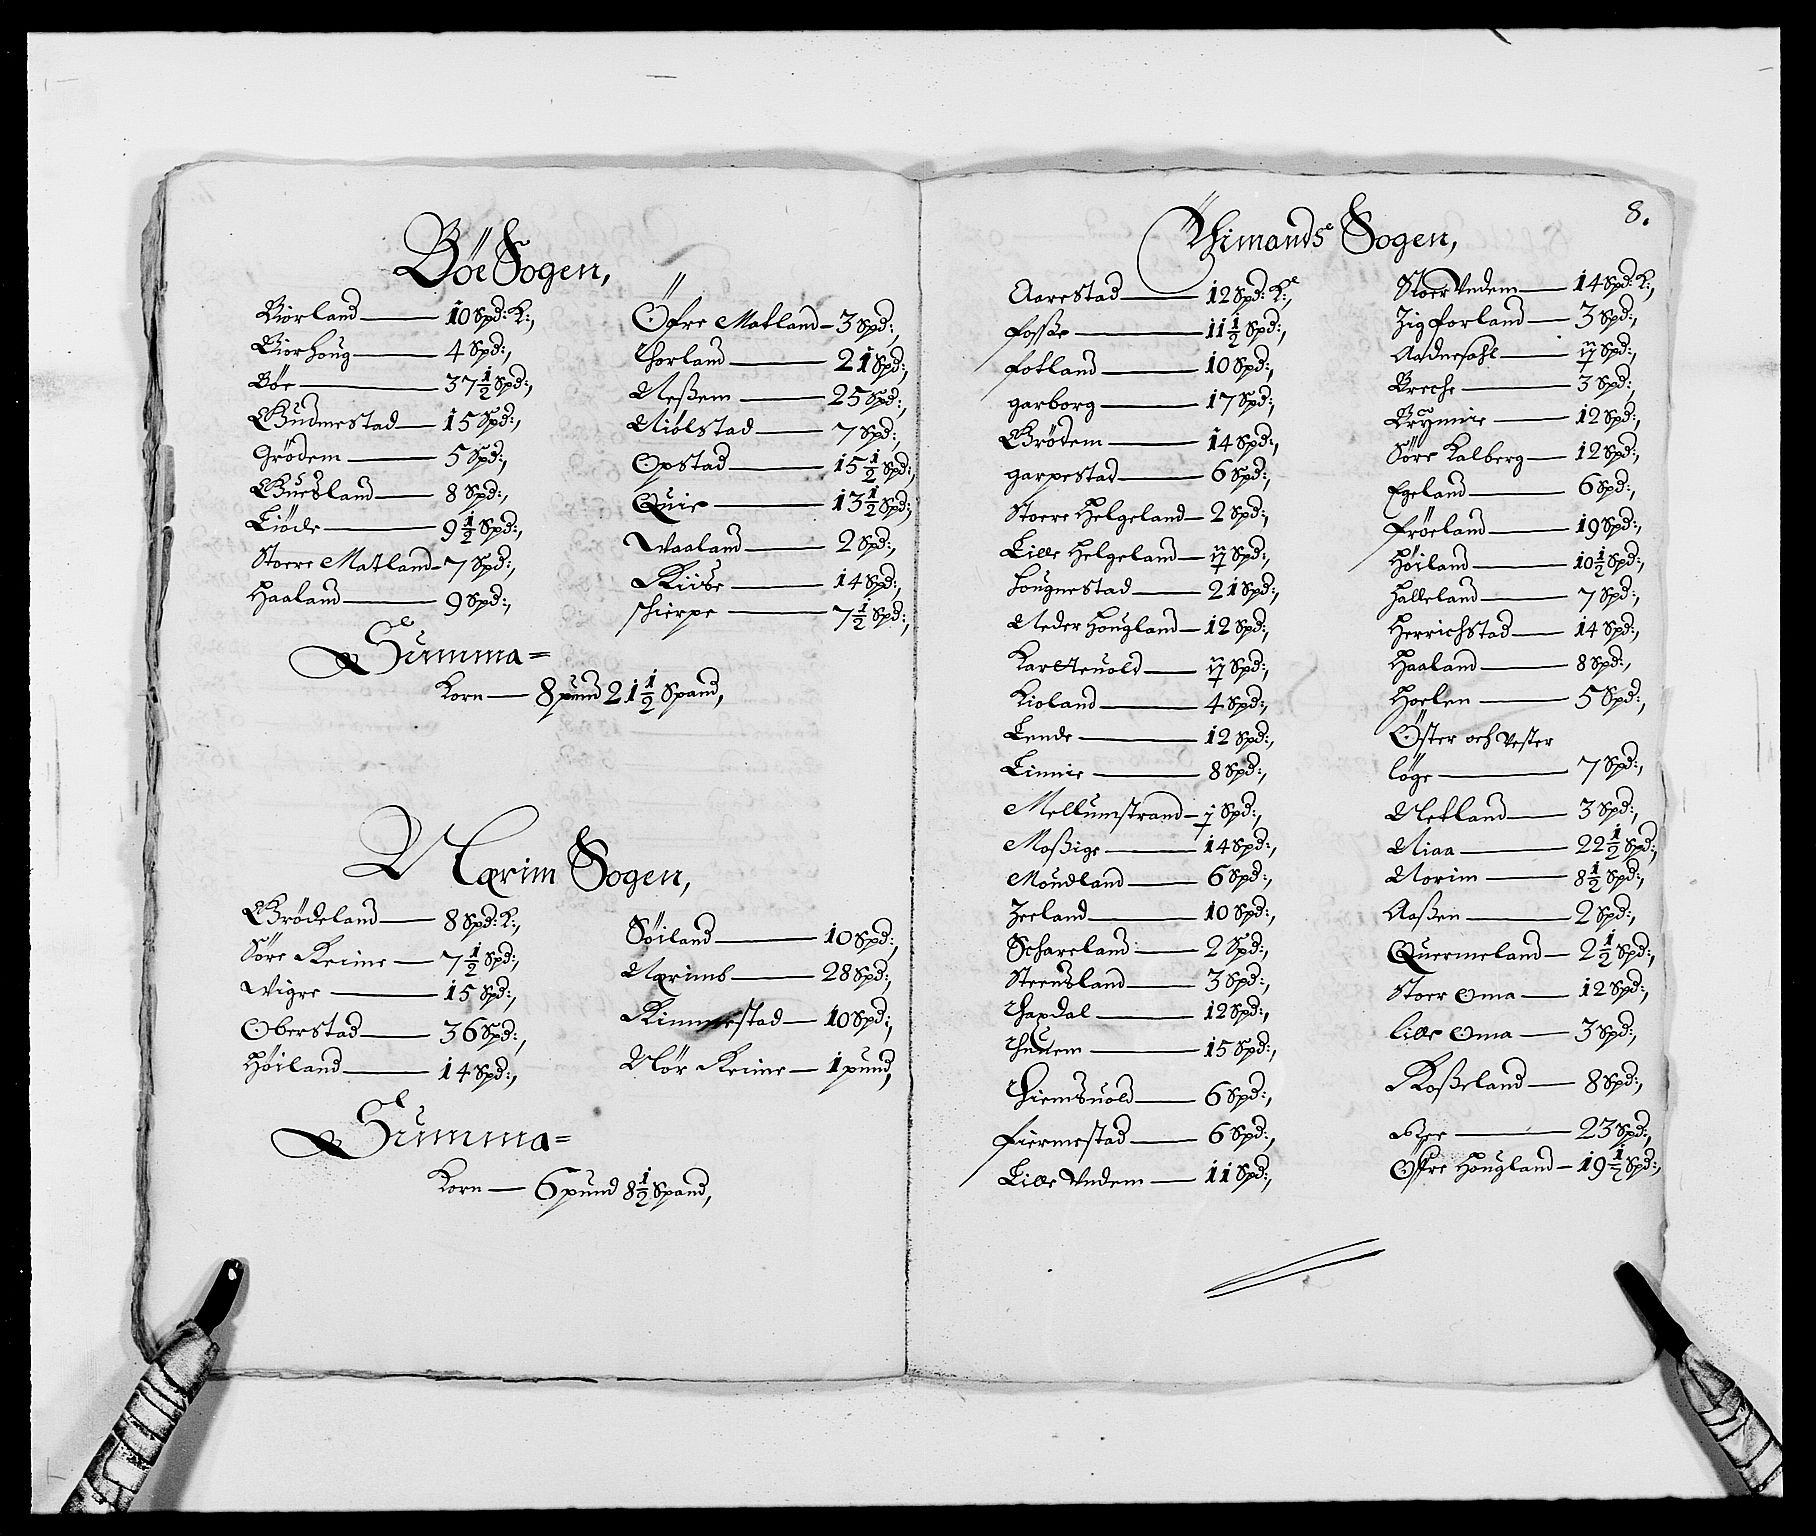 Böe Sogen,
Biorland — 10 Spd: K:,
Biorhoug — 4 Spd:,
Böe — 37½ Spd:,
Gudmestad — 15 Spd:,
Grödem — 5 Spd:,
Guesland — 8 Spd:,
Liöde — 9½ Spd:,
Stoere Matland — 7 Spd:,
Haaland — 9 Spd:,
Öfre Matland — 3 Spd:,
Thorland — 21 Spd:,
Neßem — 25 Spd:,
Niölstad — 7 Spd:,
Opstad — 15½ Spd:,
Quie — 13½ Spd:,
Waaland — 2 Spd:,
Riise — 14 Spd:,
schierpe — 7½ Spd:,
Summa =
Korn — 8 pund 21½ Spand,
Nærim Sogen,
Grödeland — 8 Spd: K:,
Söre Reime — 7½ Spd:,
Wigre — 15 Spd:,
Oberstad — 36 Spd:,
Höiland — 14 Spd:,
Söiland — 10 Spd:,
Nærimb — 28 Spd:,
Rimmestad — 10 Spd:,
Nör Reime — 1 pund,
Summa =
Korn — 6 pund 8½ Spand,
8.
Thimands Sogen,
Aarestad — 12 Spd: K:,
foße — 11½ Spd:,
fotland — 10 Spd:,
garborg — 17 Spd:,
Grödem — 14 Spd:,
garpestad — 6 Spd:,
Stoere Helgeland — 2 Spd:,
Lille Helgeland — Spd:,
Hougnestad — 21 Spd:,
Neder Hougland — 12 Spd:,
Spd:,
Kioland — 4 Spd:,
Lende — 12 Spd:,
Linnie — 8 Spd:,
Mellumstrand — Spd:,
Moßige — 14 Spd:,
Moudland — 6 Spd:,
Zeeland — 10 Spd:,
Schareland — 2 Spd:,
Steensland — 3 Spd:,
12 Spd:,
Thuem — 15 Spd:,
Thiemsuold — 6 Spd:,
fiermestad — 6 Spd:,
Lille Undem — 11 Spd:,
Stoer Undem — 14 Spd: K:,
Zigforland — 3 Spd:,
Spd:,
Breche — 3 Spd:,
Brÿnnie — 12 Spd:,
Söre Kalberg — 12 Spd:,
Egeland — 6 Spd:,
fröeland — 19 Spd:,
Höiland — 10½ Spd:,
Halleland — 7 Spd:,
Herrichstad — 14 Spd:,
Haaland — 8 Spd:,
Hoelen — 5 Spd:,
Öster och Vester
löge — 7 Spd:,
Netland — 3 Spd:,
Niaa — 22½ Spd:,
Norim — 8½ Spd:,
Aaßen — 2 Spd:,
Quermeland — 2½ Spd:,
Stoer Oma — 12 Spd:,
lille Oma — 3 Spd:,
Roßeland — 8 Spd:,
23 Spd:,
Öffre Hougland — 19½ Spd:,